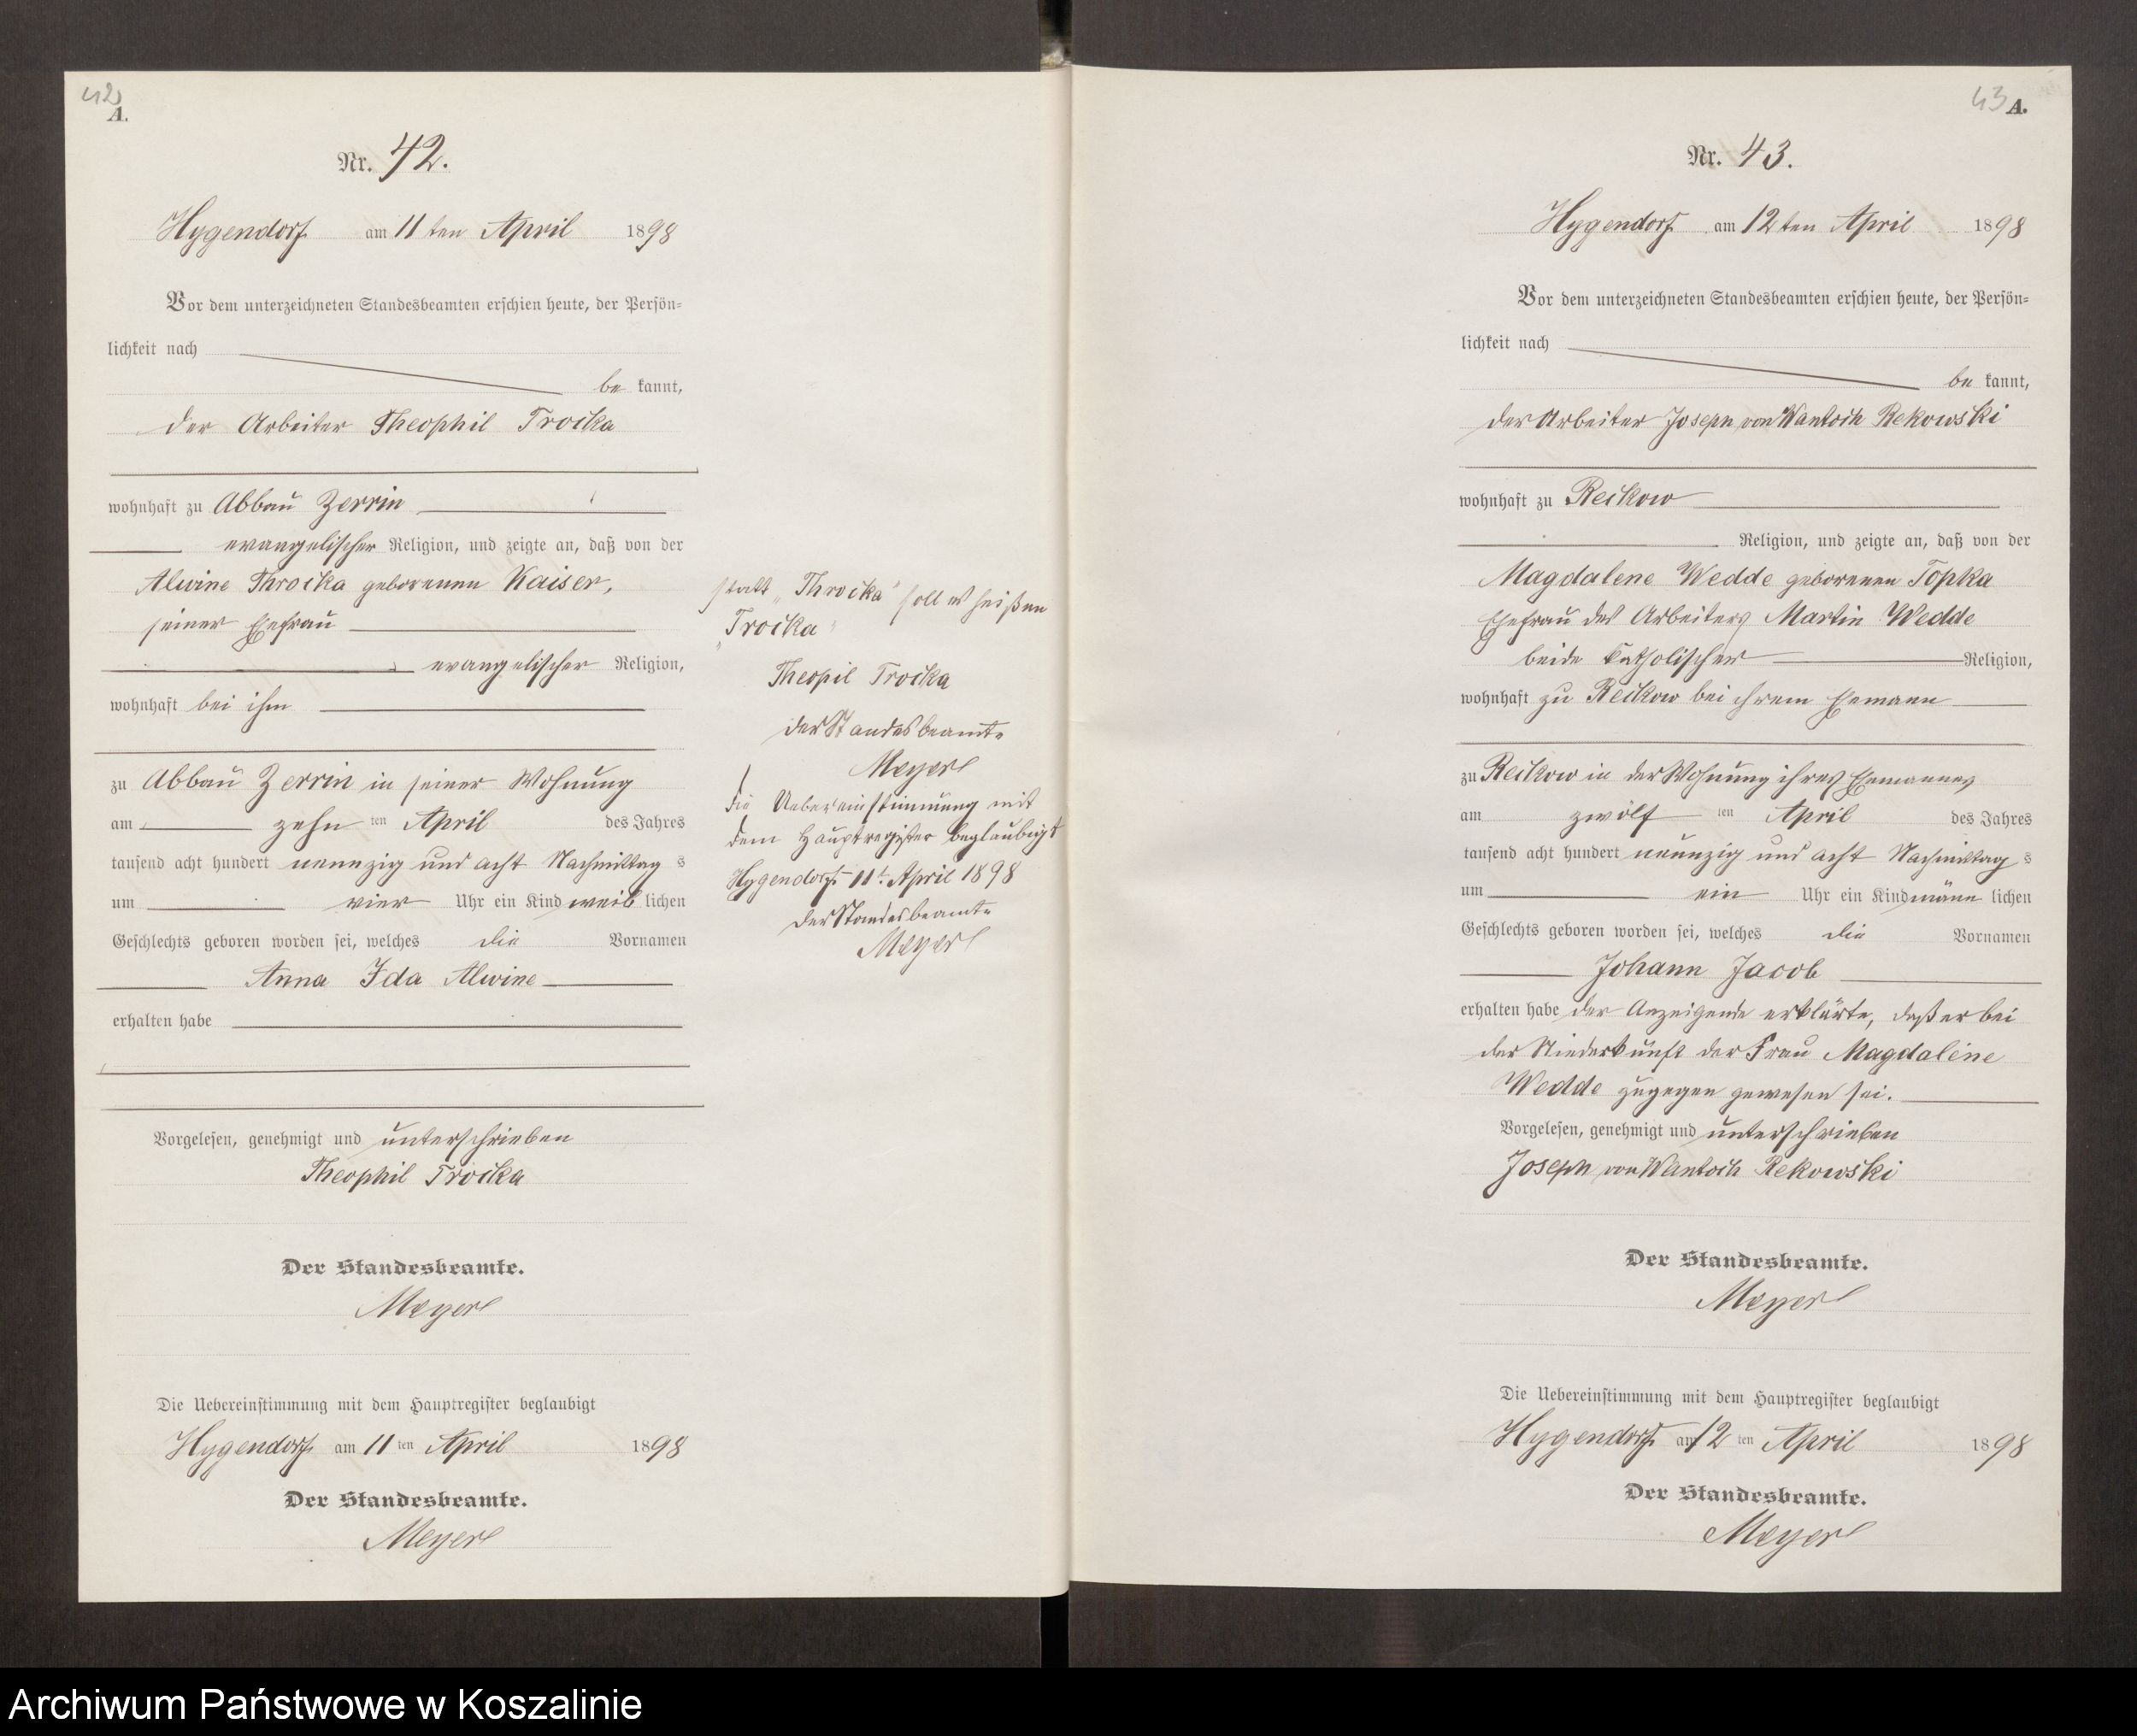 42
A.
Nr. 42.
Hygendorf am 11ten April 1898
Vor dem unterzeichneten Standesbeamten erschien heute, der Persön-
lichkeit nach
be kannt,
der Arbeiter Theophil Trocka
wohnhaft zu Abbau Zerrin
evangelischer Religion, und zeigte an, daß von der
Alwine Throcka geborenen Kaiser,
seiner Ehefrau
evangelischer Religion,
wohnhaft bei ihm
zu Abbau Zerrin in seiner Wohnung
am zehn ten April des Jahres
tausend acht hundert neunzig und acht Nachmittag s
um vier Uhr ein Kind weib lichen
Geschlechts geboren worden sei, welches die Vornamen
Anna Ida Alwine
erhalten habe
Vorgelesen, genehmigt und unterschrieben
Theophil Trocka
Der Standesbeamte.
Meyer
Die Uebereinstimmung mit dem Hauptregister beglaubigt
Hygendorf am 11 ten April 1898
Der Standesbeamte.
Meyer
statt „Throcka“ soll es heißen
„Trocka
Theopil Trocka
Der Standesbeamte
Meyer
Die Uebereinstimmung mit
dem Hauptregister beglaubigt
Hygendorf 11t. April 1898
Der Standesbeamte
Meyer
43
A.
Nr. 43.
Hygendorf am 12ten April 1898
Vor dem unterzeichneten Standesbeamten erschien heute, der Persön-
lichkeit nach
be kannt,
der Arbeiter Joseph von Wantoch Rekowski
wohnhaft zu Reckow
Religion, und zeigte an, daß von der
Magdalene Wedde geborenen Topka
Ehefrau des Arbeiters Martin Wedde
beide katholischer Religion,
wohnhaft zu Reckow bei ihrem Ehemann
zu Reckow in der Wohnung ihres Ehemannes
am zwölf ten April des Jahres
tausend acht hundert neunzig und acht Nachmittag s
um ein Uhr ein Kind männ lichen
Geschlechts geboren worden sei, welches die Vornamen
Johann Jacob
erhalten habe der Anzeigende erklärte, daß er bei
der Niederkunft der Frau Magdalene
Wedde zugegen gewesen sei.
Vorgelesen, genehmigt und unterschrieben
Joseph von Wantoch Rekowski
Der Standesbeamte.
Meyer
Die Uebereinstimmung mit dem Hauptregister beglaubigt
Hygendorf am 12 ten April 1898
Der Standesbeamte.
Meyer
Archiwum Państwowe w Koszalinie